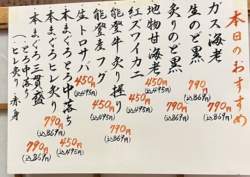 本日のおすすめ
ガス海老 790円 (込869円)
生のど黒 790円 (込869円)
炙りのど黒 790円 (込869円)
地物甘海老 450円 (込495円)
紅ズワイカニ 450円 (込495円)
能登牛炙り握り 790円 (込869円)
能登産フグ 450円 (込495円)
生トロサバ 450円 (込495円)
本まぐろとろ中落ち 450円 (込495円)
本まぐろヒレ炙り 790円 (込869円)
本まぐろ三貫盛 790円 (込869円)
とろ中落ち
ヒレ炙り 赤身